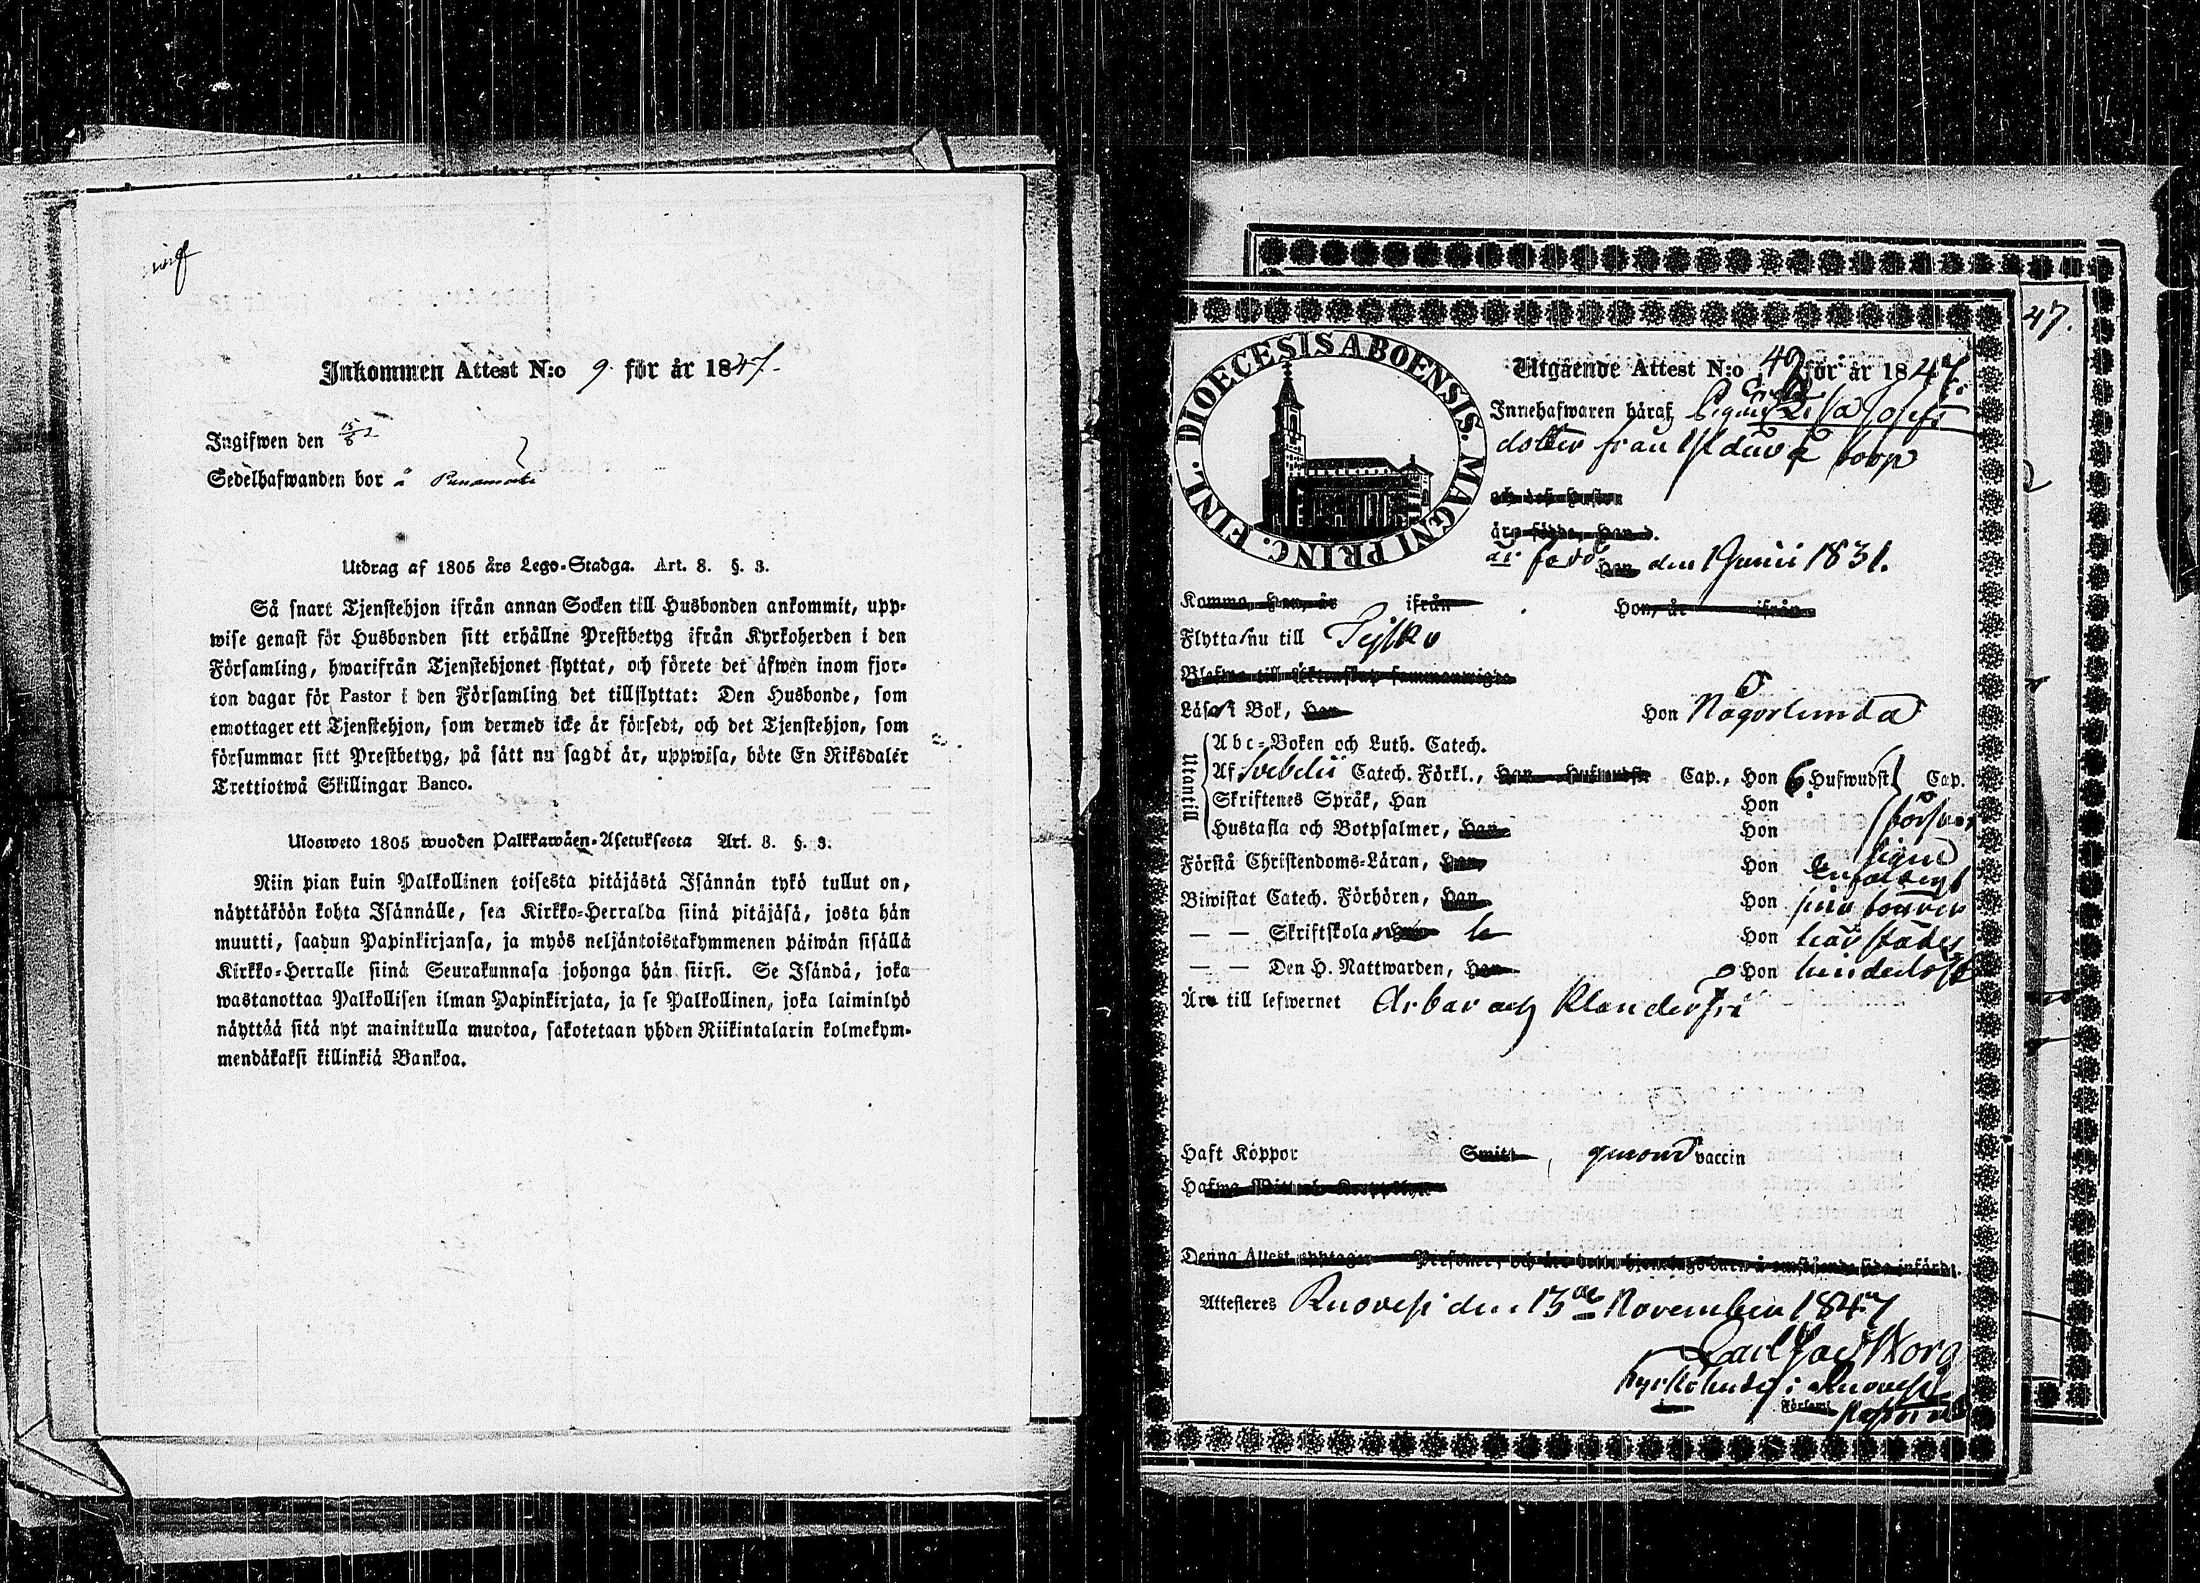 Inkommen Attest N:o 9 för år 1847.
Ingifwen den 15/8
Sedelhafwanden bor å
Utdrag af 1805 års Lego-Stadga. Art. 8. §. 3.
Så snart Tjenstehjon ifrån annan Socken till Husbonden ankommit, upp-
wise genast för Husbonden sitt erhållne Prestbetyg ifrån Kyrkoherden i den
Församling, hwarifrån Tjenstehjonet flyttat, och förete det äfwen inom fjor-
ton dagar för Pastor i den Församling det tillflyttat: Den Husbonde, som
emottager ett Tjenstehjon, som dermed icke är försedt, och det Tjenstehjon, som
försummar sitt Prestbetyg, på sätt nu sagdt är, uppwisa, böte En Riksdaler
Trettiotwå Skillingar Banco.
Ulosweto 1805 wuoden Palkkawäen-Asetuksesta Art. 8. §. 3.
Niin pian kuin Palkollinen toisesta pitäjästä Isännän tykö tullut on,
näyttäköön kohta Isännälle, sen Kirkko-Herralda siinä pitäjäsä, josta hän
muutti, saadun Papinkirjansa, ja myös neljäntoistakymmenen päiwän sisällä
Kirkko-Herralle siinä Seurakunnasa johonga hän siirsi. Se Isändä, joka
wastanottaa Palkollisen ilman Papinkirjata, ja se Palkollinen, joka laiminlyö
näyttää sitä nyt mainitulla muotoa, sakotetaan yhden Riikintalarin kolmekym-
mendäkaksi killinkiä Bankoa.
47.
DIOECESIS ABOENSIS. MAGNI PRINC. FINL.
Utgående Attest N:o 40 för år 1847.
Innehafwaren häraf Pigan Lisa Josefs
dotter från torp
är född den 1 Junii 1831.
Komma, Han, är ifrån Hon, är ifrån
Flytta nu till
Läser i Bok, Han Hon Någorlunda
Utantill
Abc-Boken och Luth. Catech.
Af Svebelii Catech. Förkl., Cap., Hon 6 Hufwudst. Cap.
Skriftenes Språk, Han Hon
Hustafla och Botpsalmer, Han Hon
Första Christendoms-Läran, Han Hon
Biwistat Catech. Förhören, Han Hon
— — Skriftskola Hon
— — Den H. Nattwarden, Han Hon
Äro till lefwernet Ärbar och Klanderfri
Haft Koppor Smitt, genom vaccin
Attesteras Ruovesi den 13de November 1847
Kyrkoherde i Ruovesi
Församl.